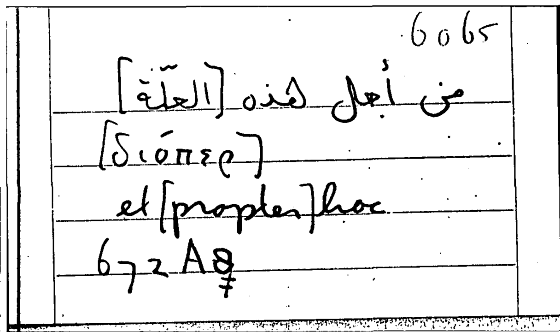 6065
من أجل هذه [العلّة]
[διόπερ]
et [propter] hoc
672 A 8
7